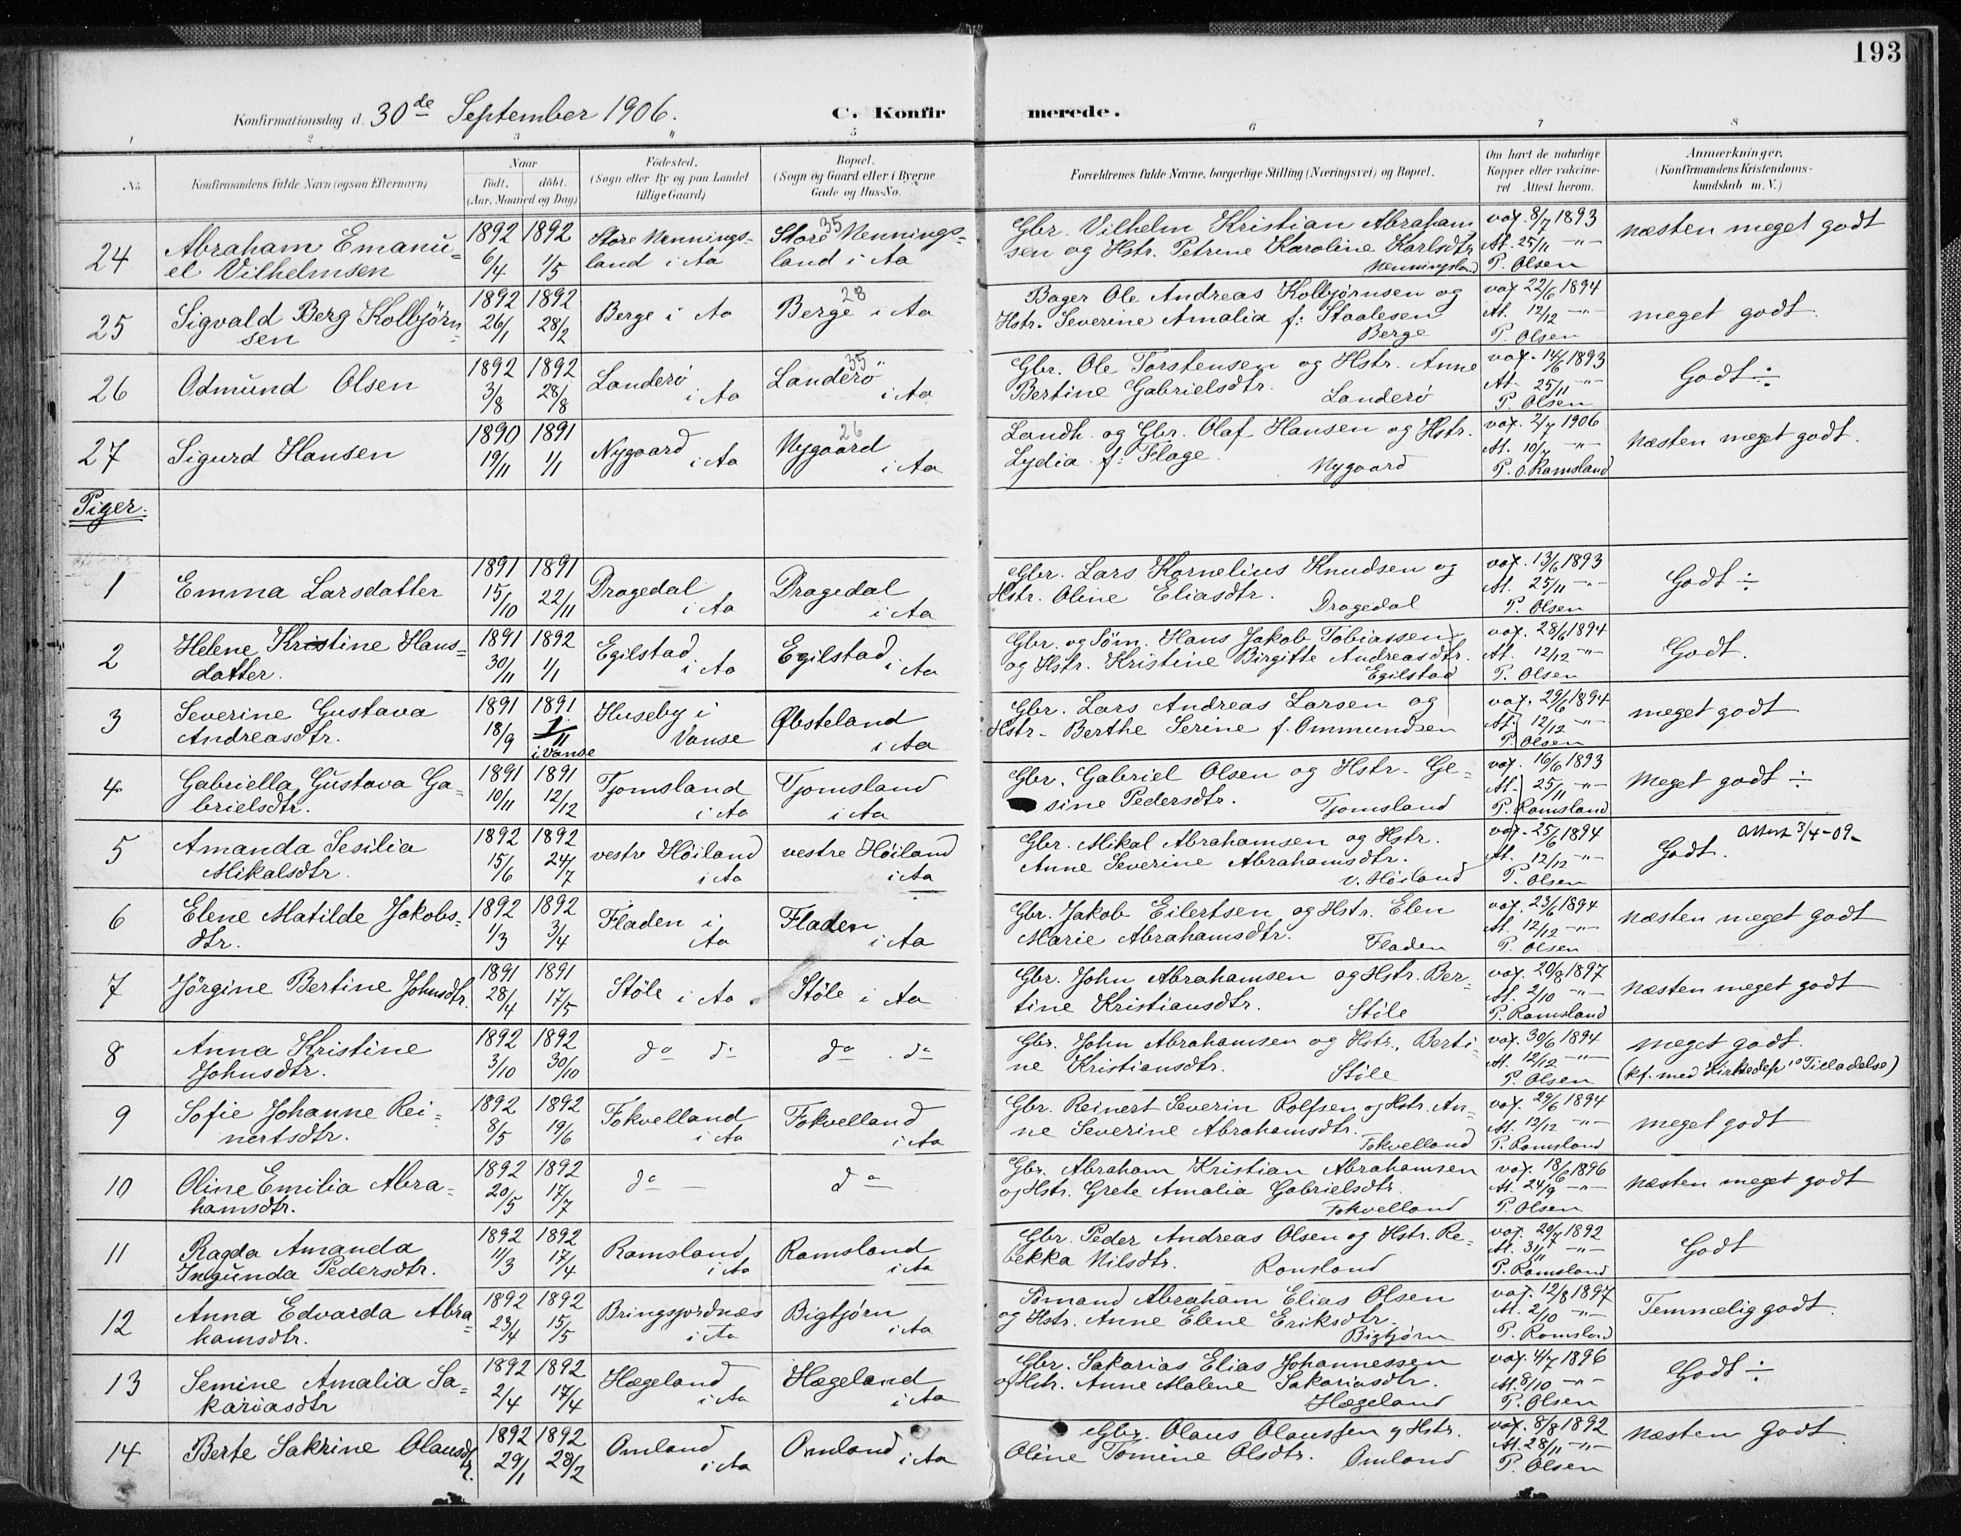 193
Konfirmationsdag d. 30de September 1906.
C. Konfirmerede.
1 2 3 4 5 6 7 8
No.
Konfirmandens fulde Navn (ogsaa Efternavn)
Naar
født. døbt.
(Aar, Maaned og Dag)
Fødested.
(Sogn eller By og paa Landet
tillige Gaard)
Bopæl.
(Sogn og Gaard eller i Byerne
Gade og Hus-No.
Forældrenes fulde Navne, borgerlige Stilling (Næringsvei) og Bopæl.
Om havt de naturlige
Kopper eller vaccine-
ret Attest herom.
Anmærkninger.
(Konfirmandens Kristendoms-
kundskab m. V.)
24 Abraham Emanu- 1892 1892 Store Nennings- Store 35 Nennings- Gbr. Vilhelm Kristian Abraham vax. 8/7 1893 næsten meget godt
el Vilhelmsen 6/4 1/5 land i Aa land i Aa sen og Hstr. Petrine Karoline Karlsdtr. At. 25/11 -"-
Nenningsland P. Olsen
25 Sigvald Berg Kolbjørn 1892 1892 Berge i Aa Berge 28 i Aa Bager Ole Andreas Kolbjørnsen og vax. 22/6 1894 meget godt.
sen 26/1 28/2 Hstr. Severine Amalia f: Staalesen At. 12/12 -"-
Berge P. Olsen
26 Odmund Olsen 1892 1892 Landerö Landerö 35 Gbr. Ole Torstensen og Hstr. Anne vax. 14/6 1893 Godt ÷
3/8 28/8 i Aa i Aa Bertine Gabrielsdtr. Landerö At. 25/11 -"-
P. Olsen
27 Sigurd Hansen 1890 1891 Nygaard Nygaard 26 Landh. og Gbr. Olaf Hansen og Hstr. vax. 2/7 1906 næsten meget godt.
19/11 1/1 i Aa i Aa Lydia f: Flage. Nygaard At. 10/7 -"-
P. O. Ramsland
Piger.
1 Emma Larsdatter 1891 1891 Dragedal Dragedal Gbr. Lars Kornelius Knudsen og vax. 13/6 1893 Godt ÷
15/10 22/11 i Aa i Aa Hstr. Oline Eliasdtr. Dragedal At. 25/11 -"-
P. Olsen
2 Helene Kristine Hans- 1891 1892 Egilstad Egilstad Gbr. og Søm. Hans Jakob Tobiassen vax. 28/6 1894 Godt.
datter. 30/11 1/1 i Aa i Aa og Hstr. Kristine Birgitte Andreasdtr. At. 12/12 -"-
Egilstad P. Olsen
3 Severine Gustava 1891 1891 Huseby i Øbsteland Gbr. Lars Andreas Larsen og vax. 29/6 1894 meget godt
Andreasdtr. 18/9 1/11 Vanse i Aa Hstr. Berthe Serine f. Ommundsen At. 12/12 -"-
i Vanse P. Olsen
4 Gabriella Gustava Ga- 1891 1891 Tjomsland Tjomsland Gbr. Gabriel Olsen og Hstr. Ge- vax. 16/6 1893 meget godt ÷
brielsdtr. 10/11 12/12 i Aa i Aa sine Pedersdtr. Tjomsland At. 25/11 -"-
P. Ramsland
5 Amanda Sesilia 1892 1892 vestre Høiland vestre Høiland Gbr. Mikal Abrahamsen og Hstr. vax. 25/6 1894 Godt. Attest 3/4-09
Mikalsdtr. 15/6 24/7 i Aa i Aa Anne Severine Abrahamsdtr. At. 12/12 -"-
V. Høiland P. Olsen
6 Elene Matilde Jakobs- 1892 1892 Fladen i Fladen Gbr. Jakob Eilertsen og Hstr. Elen vax. 23/6 1894 næsten meget godt
dtr. 1/3 3/4 Aa i Aa Marie Abrahamsdtr. Fladen At. 12/12 -"-
P. Olsen
7 Jörgine Bertine Johnsdtr. 1891 1891 Støle i Aa. Støle i Aa Gbr. John Abrahamsen og Hstr. Ber- vax. 20/8 1897 næsten meget godt
28/4 17/5 tine Kristiansdtr. Støle At. 2/10 -"-
P. Ramsland
8 Anna Kristine 1892 1892 do do do do Gbr. John Abrahamsen og Hstr. Berti- vax. 30/6 1894 meget godt.
Johnsdtr. 3/10 30/10 ne Kristiansdtr. Støle At. 12/12 -"- (kf. med Kirkedep's Tilladelse)
P. Olsen
9 Sofie Johanne Rei- 1892 1892 Fokvelland Fokvelland Gbr. Reinert Severin Rolfsen og Hstr. An- vax. 29/6 1894 meget godt
nertsdtr. 8/5 19/6 i Aa i Aa ne Severine Abrahamsdtr. At. 12/12 -"-
Fokvelland P. Ramsland
10 Oline Emilia Abra- 1892 1892 do do Gbr. Abraham Kristian Abrahamsen vax. 18/6 1896 næsten meget godt
hamsdtr. 20/5 17/7 og Hstr. Grete Amalia Gabrielsdtr. At. 24/9 -"-
Fokvelland P. Olsen
11 Ragda Amanda 1892 1892 Ramsland Ramsland Gbr. Peder Andreas Olsen og Hstr. Re- vax. 20/7 1892 Godt
Ingunda Pedersdtr. 11/3 17/4 i Aa i Aa bekka Nilsdtr. Ramsland At. -"-
P. Ramsland
12 Anna Edvarda Abra 1892 1892 Bringsjordnæs Bigtjørn Sømand Abraham Elias Olsen vax. 12/8 1897 Temmelig godt.
hamsdtr. 23/4 15/5 i Aa i Aa og Hstr. Anne Elene Eriksdtr. At. 2/10 -"-
Bigtjørn P. Ramsland
13 Semine Amalia Sa- 1892 1892 Hægeland Hægeland Gbr. Sakarias Elias Johannessen vax. 4/7 1896 Godt ÷
kariasdtr 2/4 17/4 i Aa i Aa og Hstr. Anne Malene Sakariasdtr. At. 8/10 -"-
Hægeland P. Olsen
14 Berte Sakrine Olausdtr. 1892 1892 Omland Omland Gbr. Olaus Olaussen og Hstr. vax. 8/8 1892 næsten Godt.
29/1 28/2 i Aa i Aa Oline Tomine Olsdtr. Omland At. 28/11 -"-
P. Olsen